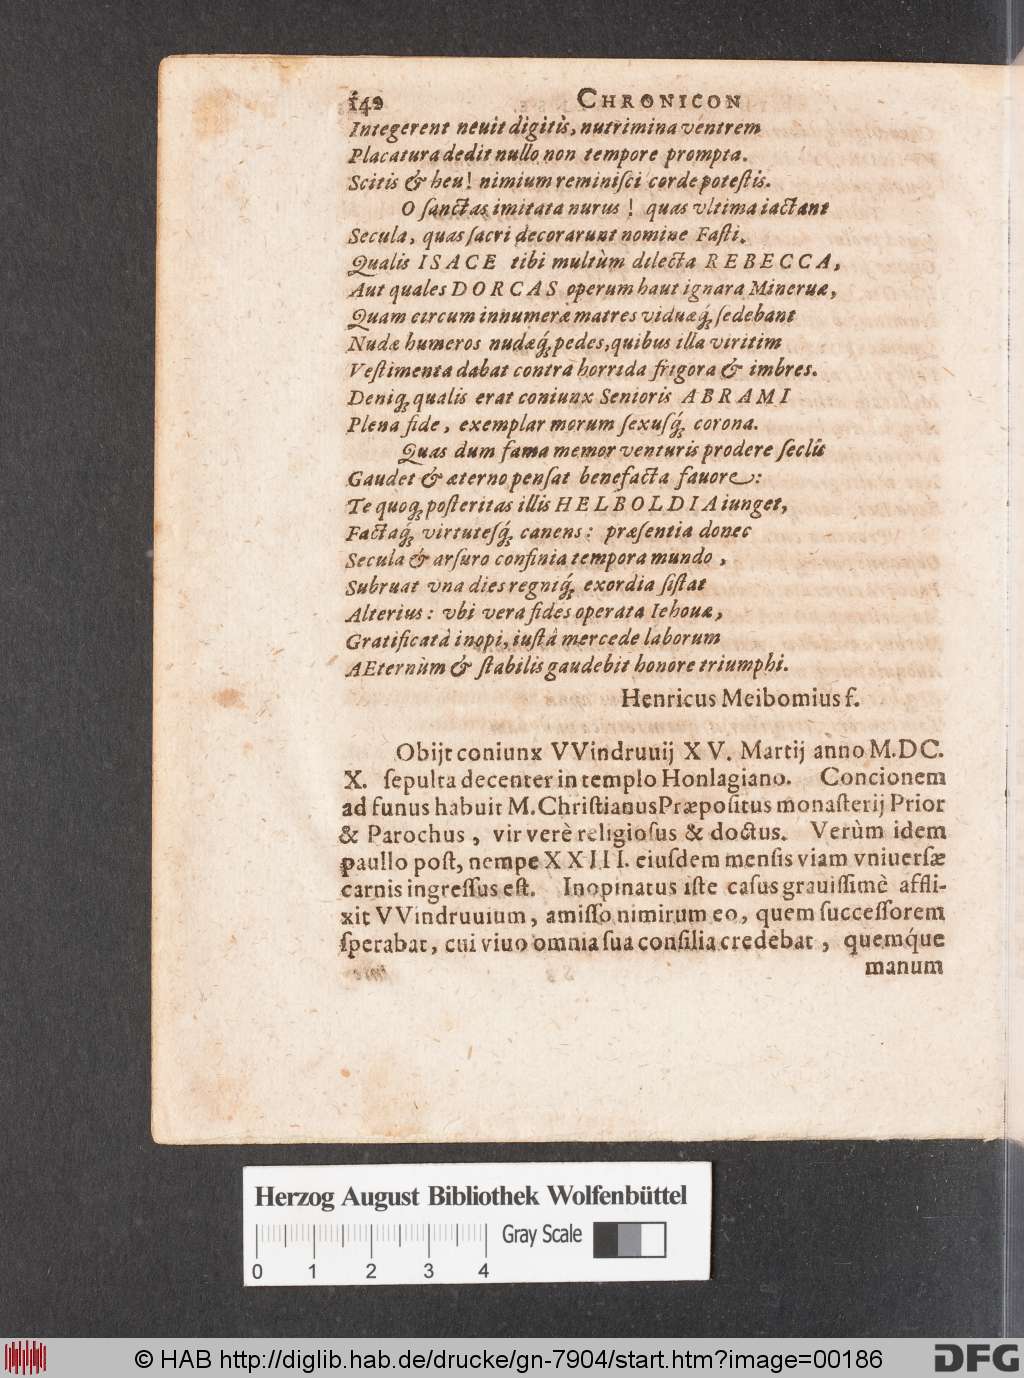 142 CHRONICON
Integerent neuit digitis, nutrimina ventrem
Placatura dedit nullo non tempore prompta.
Scitis & heu! nimium reminisci corde potestis.
O sanctas imitata nurus! quas vltima iactant
Secula, quas sacri decorarunt nomine Fasti.
Qualis ISACE tibi multùm dilecta REBECCA,
Aut quales DORCAS operum haut ignara Mineruæ,
Quam circum innumeræ matres viduæq́; sedebant
Nudæ humeros nudæq́; pedes, quibus illa viritim
Vestimenta dabat contra horrida frigora & imbres.
Deniq; qualis erat coniunx Senioris ABRAMI
Plena fide, exemplar morum sexusq́; corona.
Quas dum fama memor venturis prodere seclis
Gaudet & æterno pensat benefacta fauore:
Te quoq; posteritas illis HELBOLDIA iunget,
Factaq́; virtutesq́; canens: præsentia donec
Secula & arsuro confinia tempora mundo,
Subruat vna dies regniq́; exordia sistat
Alterius: vbi vera fides operata Iehouæ,
Gratificatâ inopi, iustâ mercede laborum
AEternùm & stabilis gaudebit honore triumphi.
Henricus Meibomius f.
Obijt coniunx VVindruuij XV. Martij anno M.DC.
X. sepulta decenter in templo Honlagiano. Concionem
ad funus habuit M. Christianus Præpositus monasterij Prior
& Parochus, vir verè religiosus & doctus. Verùm idem
paullo post, nempe XXIII. eiusdem mensis viam vniuersæ
carnis ingressus est. Inopinatus iste casus grauissimè affli-
xit VVindruuium, amisso nimirum eo, quem successorem
sperabat, cui viuo omnia sua consilia credebat, quemq́ue
manum
Herzog August Bibliothek Wolfenbüttel
Gray Scale
0 1 2 3 4
© HAB http://diglib.hab.de/drucke/gn-7904/start.htm?image=00186
DFG